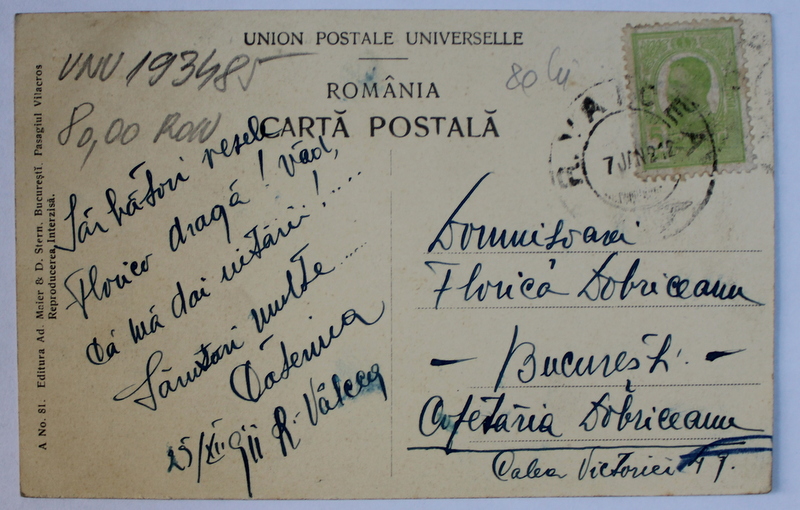 UNION POSTALE UNIVERSELLE
ROMÂNIA
CARTĂ POSTALĂ
VNU 193485
80,00 RON
80 lei
R. VÂLC
7 JAN 912
A No. 81. Editura Ad. Maier & D. Stern. Bucureşti. Pasagiul Vilacros
Reproducerea Interzisă.
Sărbători vesele
Florico dragă! Văd,
că mă dai uitării!.....
Sărutări multe....
25/XII 911 R-Vâlcea
Domnişoarei
Florica Dobriceanu
- Bucureşti. -
Cofetăria Dobriceanu
Calea Victoriei